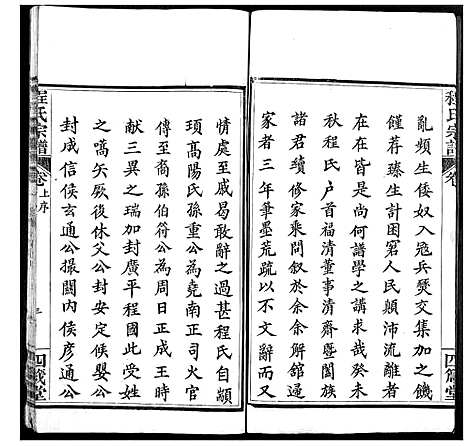 程氏宗譜
卷
亂頻生倭奴入寇兵燹交集加之饑
饉荐臻生計困窘人民顛沛流離者
在在皆是尚何譜學之講求哉癸未
秋程氏戶首福清濟齋暨闔族
諸君續修家乘問叙於余余解館過
家者三年筆墨荒疏以不文辭而又
四箴堂
情處至戚曷敢辭之過甚程氏自顓
頊高陽氏孫重公為堯南正司火官
傳至裔孫伯符公為周日正成王時
献三異之瑞加封廣平程國此受姓
之嚆矢厥後休父公封安定侯嬰公
封成信侯玄通公撮關內侯彥通公
程氏宗譜
卷上序
四箴堂